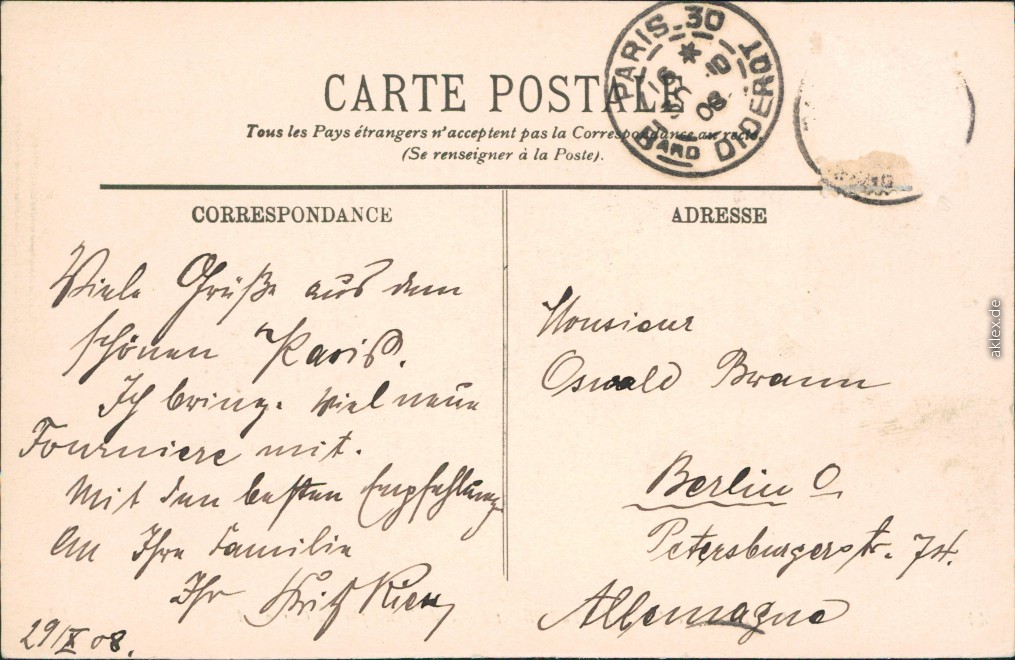 CARTE POSTALE
Tous les Pays étrangers n'acceptent pas la Correspondance au recto
(Se renseigner à la Poste).
PARIS 30
BARD DIDEROT
08
CORRESPONDANCE
Viele Grüße aus dem
schönen Paris.
Ich bringe viel neue
Fourniere mit.
Mit den besten Empfehlung
An Ihre Familie
Ihr Fritz
29/X 08.
ADRESSE
Monsieur
Oswald Braun
Berlin O
Petersburgerstr. 74.
Allemagne
aklex.de